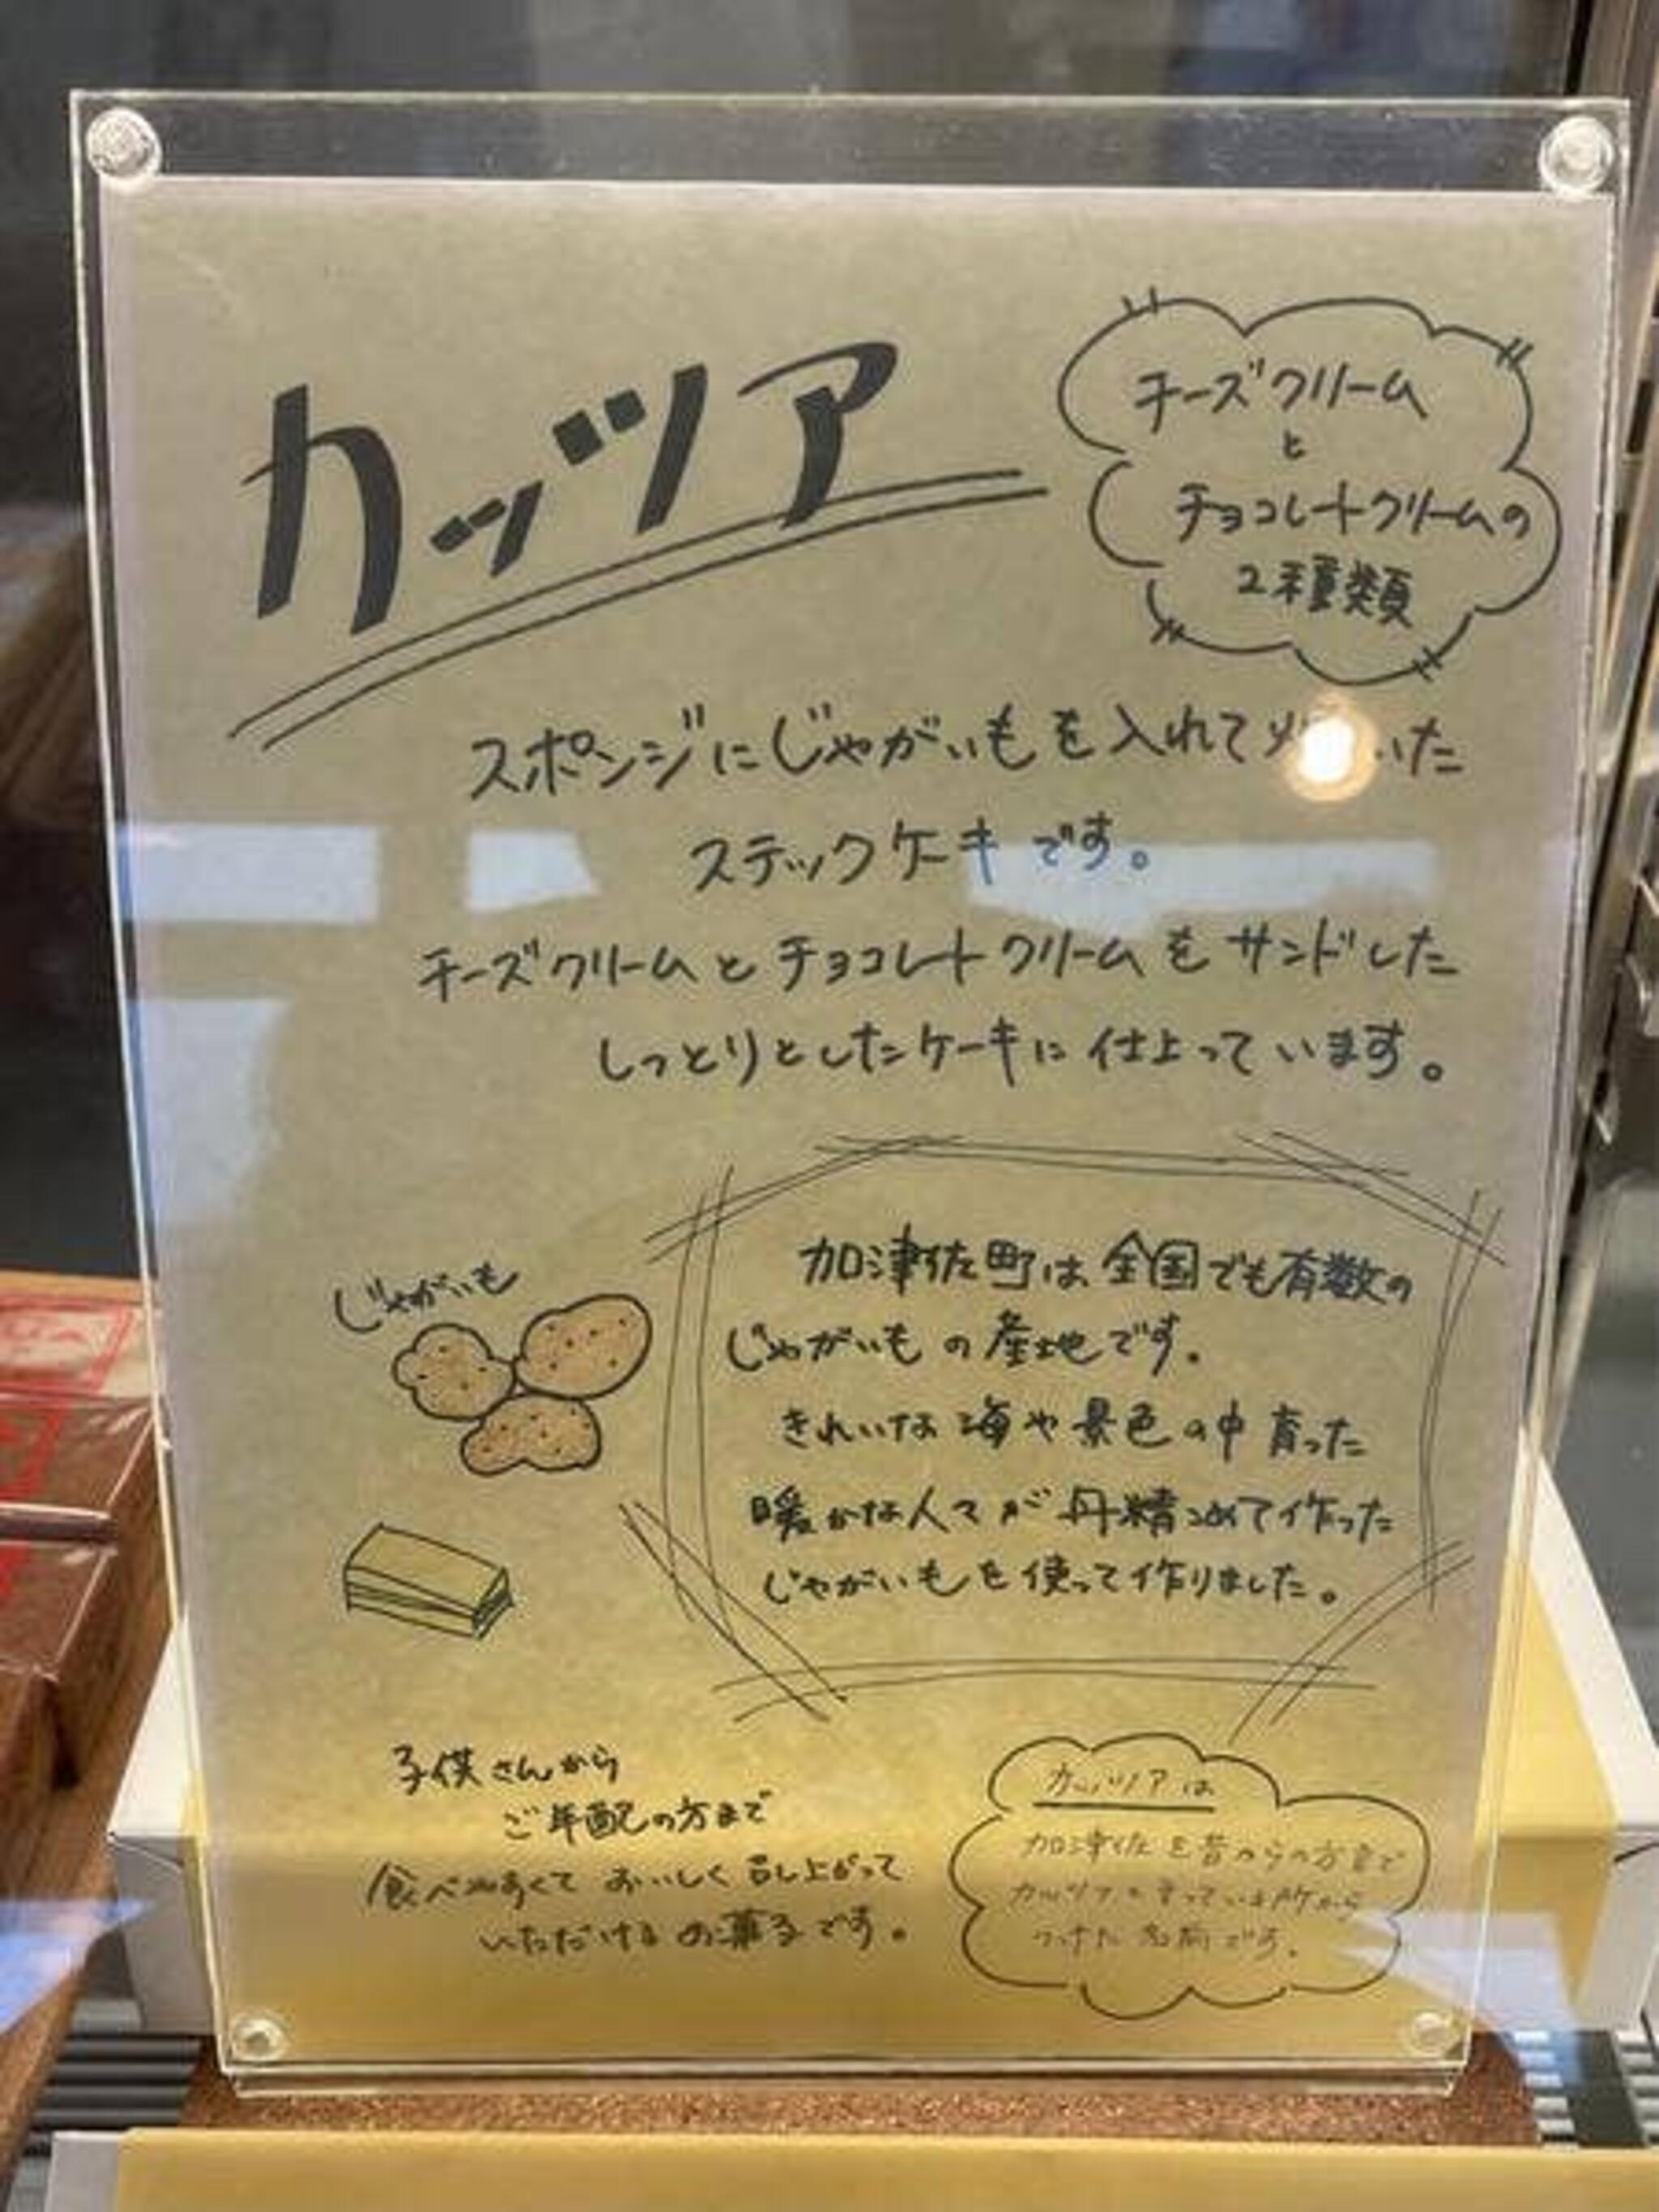 カッツア
チーズクリーム
と
チョコレートクリームの
2種類
スポンジにじゃがいもを入れて いた
ステックケーキです。
チーズクリームとチョコレートクリームをサンドした
しっとりとしたケーキに仕上っています。
じゃがいも
加津佐町は、全国でも有数の
じゃがいもの産地です。
きれいな海や景色の中育った
暖かな人々が丹精こめて作った
じゃがいもを使って作りました。
子供さんから
ご年配の方まで
食べやすくておいしく召し上がって
いただけるお菓子です。
カッツアは
加津佐を昔からの方言で
カッツアと言っている所から
つけた名前です。